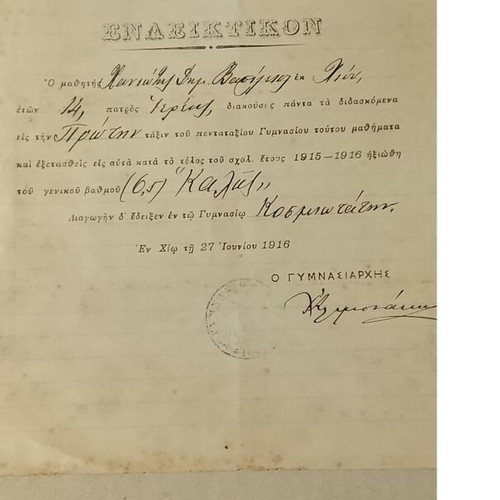 ΕΝΔΕΙΚΤΙΚΟΝ
Ὁ μαθητὴς Δημ. Βασίλειος ἐκ Χίου,
ἐτῶν 14, πατρὸς Ἱερέως, διακούσας πάντα τὰ διδασκόμενα
εἰς τὴν Πρώτην τάξιν τοῦ πενταταξίου Γυμνασίου τούτου μαθήματα
καὶ ἐξετασθεὶς εἰς αὐτὰ κατὰ τὸ τέλος τοῦ σχολ. ἔτους 1915–1916 ἠξιώθη
τοῦ γενικοῦ βαθμοῦ (6,5) "Καλῶς„
Διαγωγὴν δ' ἔδειξεν ἐν τῷ Γυμνασίῳ Κοσμιωτάτην.
Ἐν Χίῳ τῇ 27 Ἰουνίου 1916
Ο ΓΥΜΝΑΣΙΑΡΧΗΣ